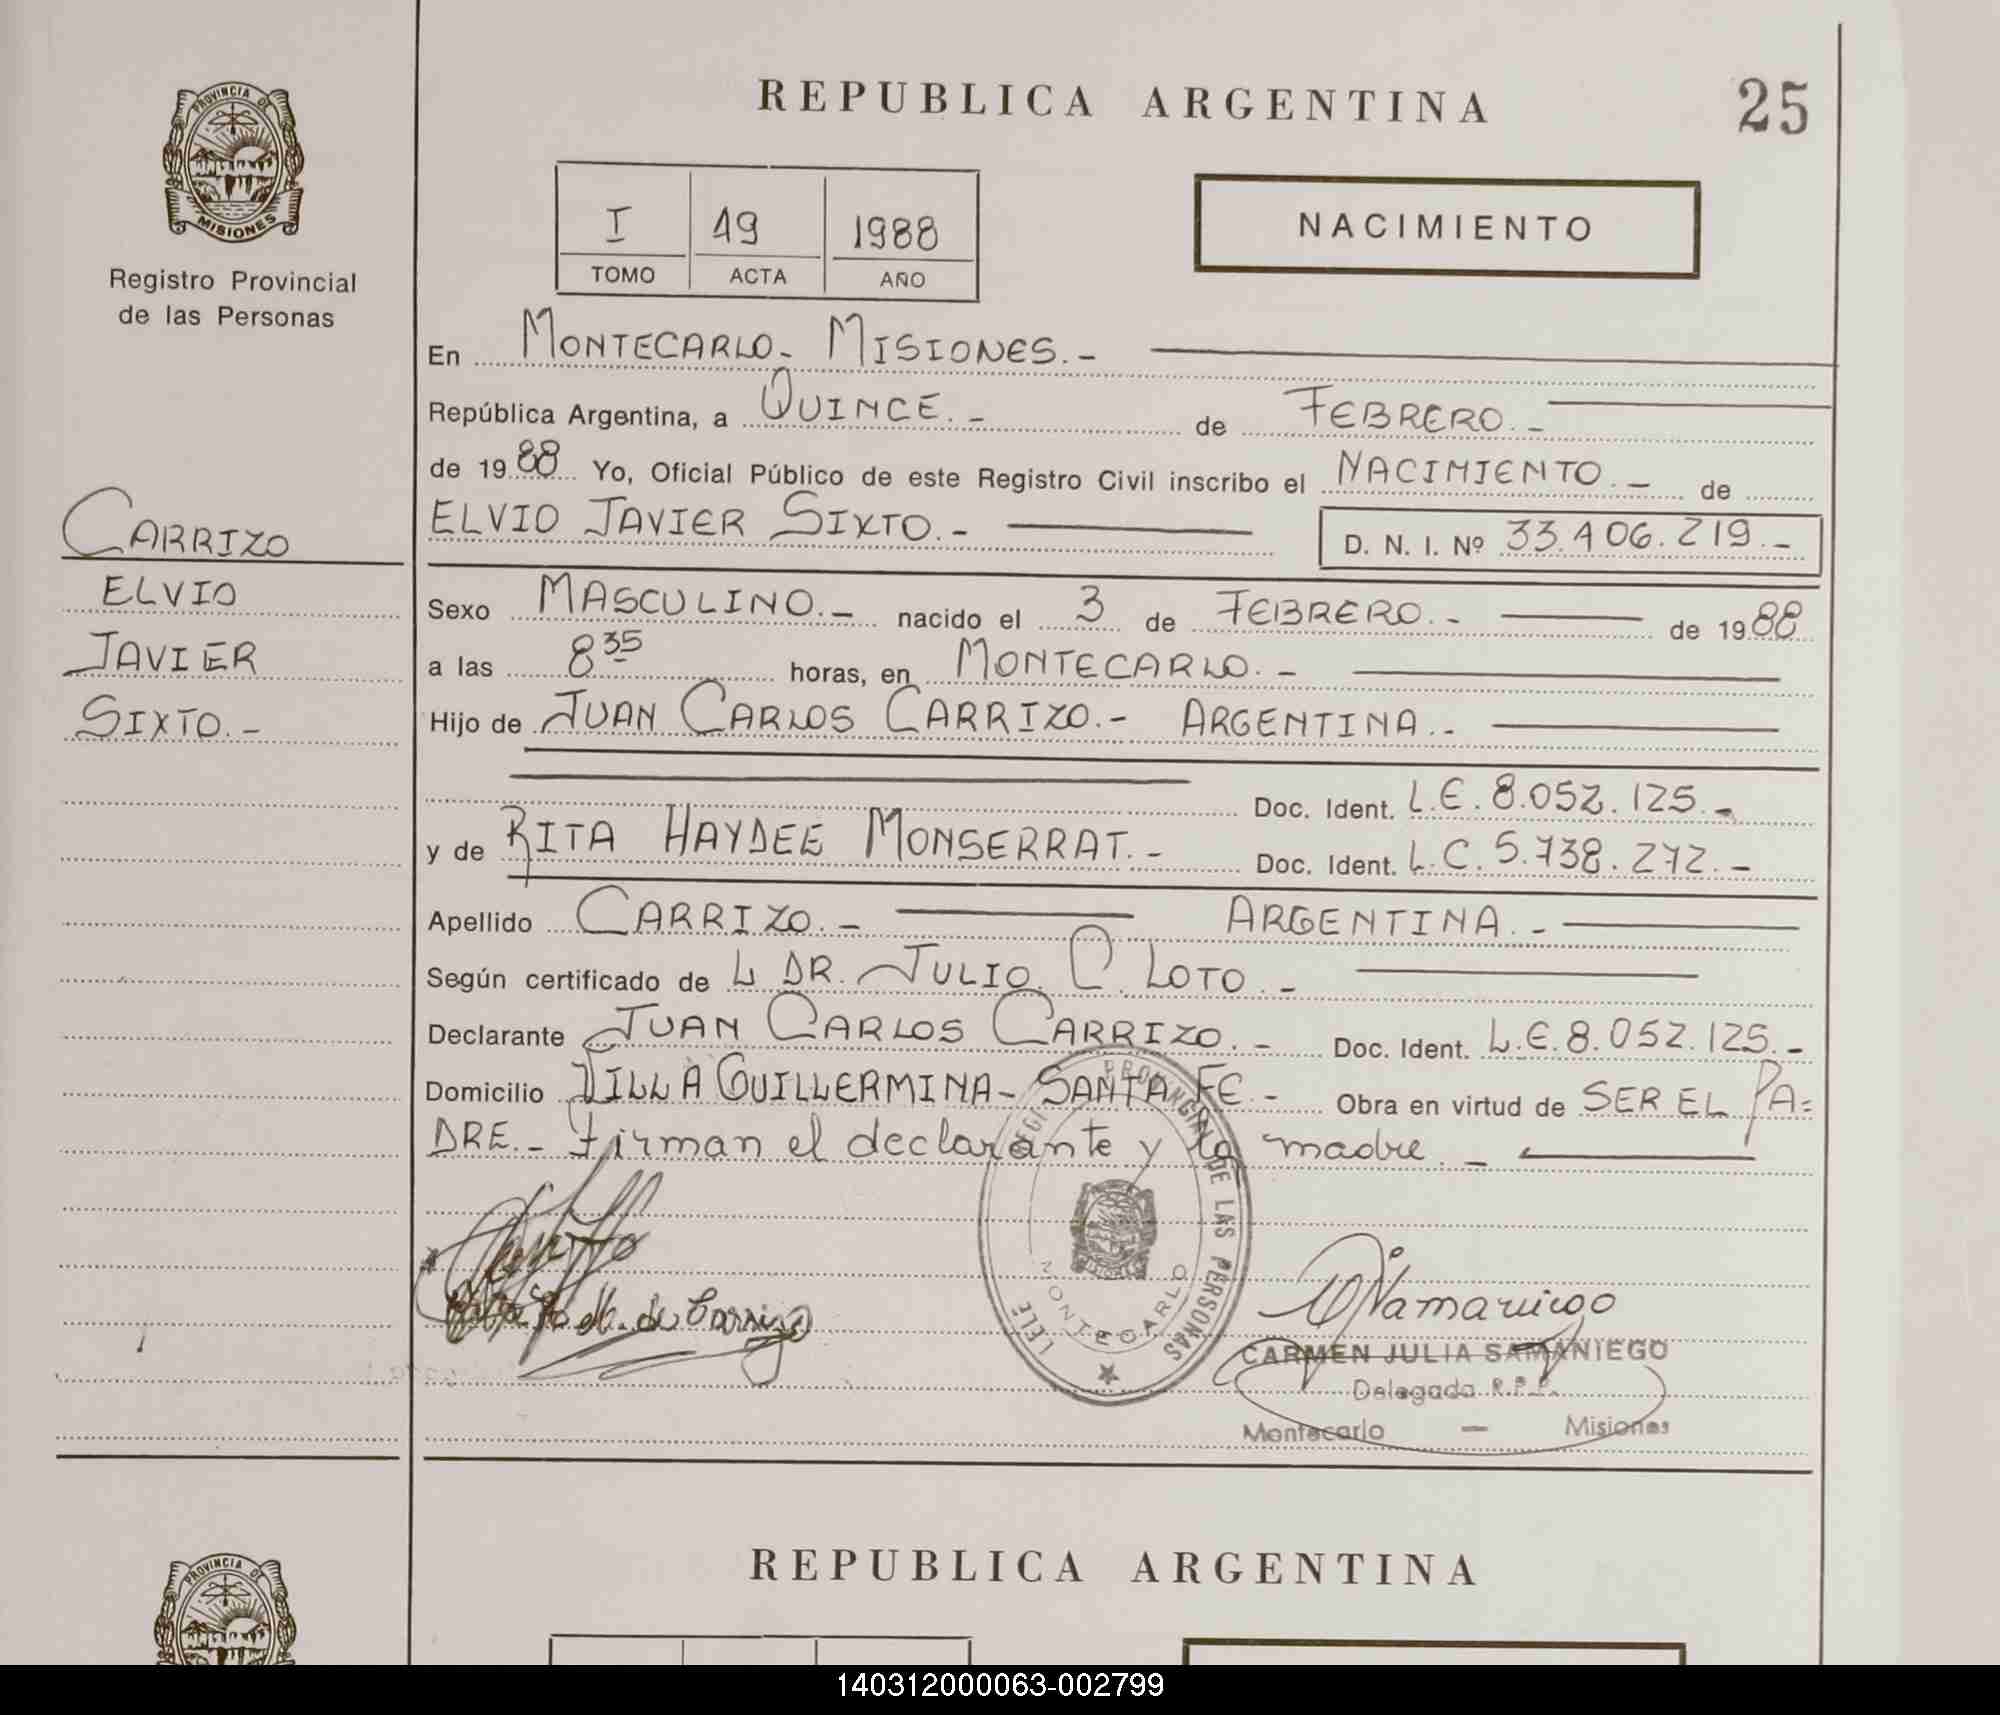 PROVINCIA DE
MISIONES
Registro Provincial
de las Personas
REPUBLICA ARGENTINA
25
I 49 1988
TOMO ACTA AÑO
NACIMIENTO
En MONTECARLO- MISIONES.-
República Argentina, a QUINCE.- de FEBRERO.-
de 1988 Yo, Oficial Público de este Registro Civil inscribo el NACIMIENTO.- de
ELVIO JAVIER SIXTO.- D. N. I. Nº 33.406.219.-
CARRIZO
ELVIO
JAVIER
SIXTO.-
Sexo MASCULINO.- nacido el 3 de FEBRERO.- de 1988
a las 8 35 horas, en MONTECARLO.-
Hijo de JUAN CARLOS CARRIZO.- ARGENTINA.-
Doc. Ident. L.E. 8.052.125.-
y de RITA HAYDEE MONSERRAT.- Doc. Ident. L.C. 5.738.272.-
Apellido CARRIZO.- ARGENTINA.-
Según certificado de L DR. JULIO C. LOTO.-
Declarante JUAN CARLOS CARRIZO.- Doc. Ident. L.E. 8.052.125.-
Domicilio VILLA GUILLERMINA- SANTA FE.- Obra en virtud de SER EL PA=
DRE.- Firman el declarante y la madre.-
PROVINCIAL DE LAS PERSONAS
MONTECARLO
de Carrizo
CARMEN JULIA SAMANIEGO
Delegada R.P.P.
Montecarlo - Misiones
REPUBLICA ARGENTINA
PROVINCIA DE
140312000063-002799